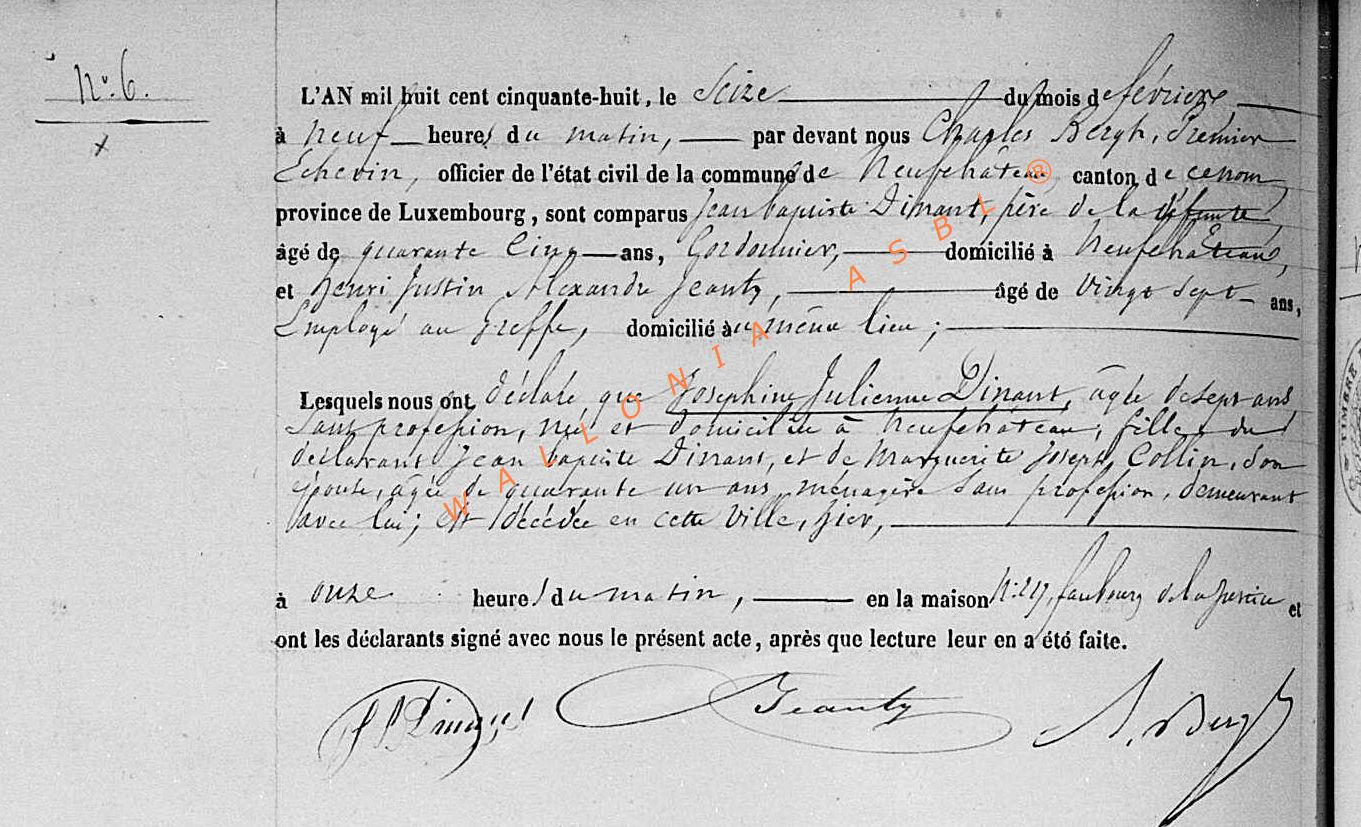 N°. 6.
L'AN mil huit cent cinquante-huit, le Seize du mois de février
à Neuf heures du matin, par devant nous Charles Bergh, Premier
Echevin, officier de l'état civil de la commune de Neufchâteau canton de ce nom
province de Luxembourg, sont comparus Jean baptiste Dinant, père de la défunte,
âgé de quarante Cinq ans, Cordonnier, domicilié à Neufchâteau,
et henri Justin Alexandre Jeanty, âgé de Vingt Sept ans,
Employé au Greffe, domicilié au même lieu;
Lesquels nous ont déclaré que Josephine Julienne Dinant, âgée de sept ans
Sans profession, née et domiciliée à Neufchâteau, fille du
déclarant Jean baptiste Dinant, et de Marguerite Joseph Collin, son
épouse, âgée de quarante un ans, ménagère sans profession, demeurant
avec lui; est décédée en cette Ville, hier,
à onze heures du matin, en la maison N° faubourg de la et
ont les déclarants signé avec nous le présent acte, après que lecture leur en a été faite.
Dinant Jeanty Bergh
WALLONIA ASBL ®
TIMBRE